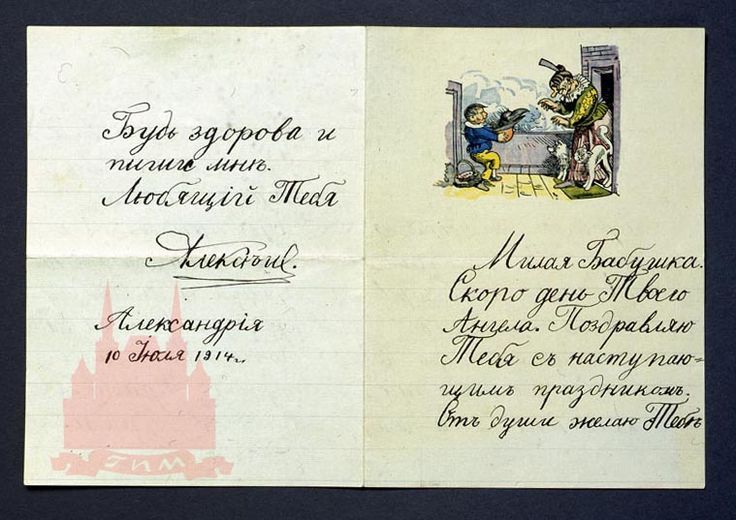 Милая Бабушка.
Скоро день Твоего
Ангела. Поздравляю
Тебя съ наступаю-
щимъ праздникомъ.
Отъ души желаю Тебѣ
Будь здорова и
пиши мнѣ.
Любящій Тебя
Алексѣй.
Александрія
10 Іюля 1914 г.
ГИМ